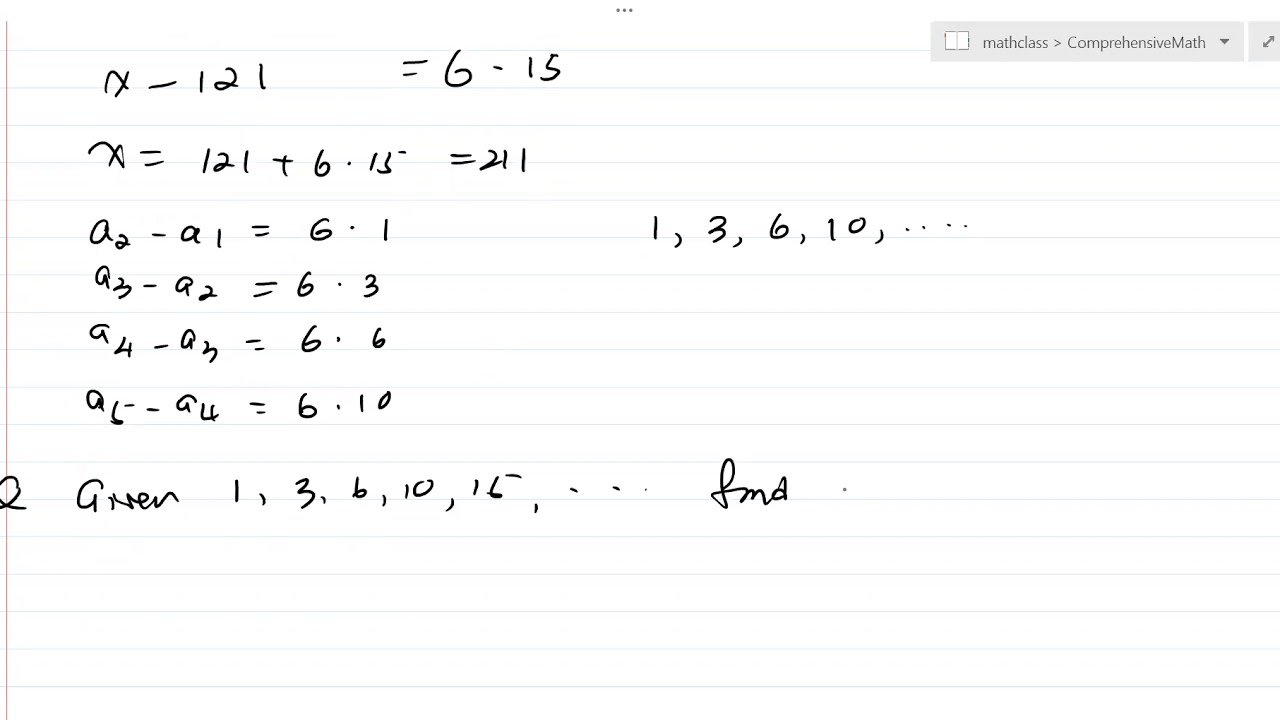 mathclass > ComprehensiveMath
x - 121 = 6 · 15
x = 121 + 6 · 15 = 211
a2 - a1 = 6 · 1
1, 3, 6, 10, ....
a3 - a2 = 6 · 3
a4 - a3 = 6 · 6
a5 - a4 = 6 · 10
Q Given 1, 3, 6, 10, 15, .... find